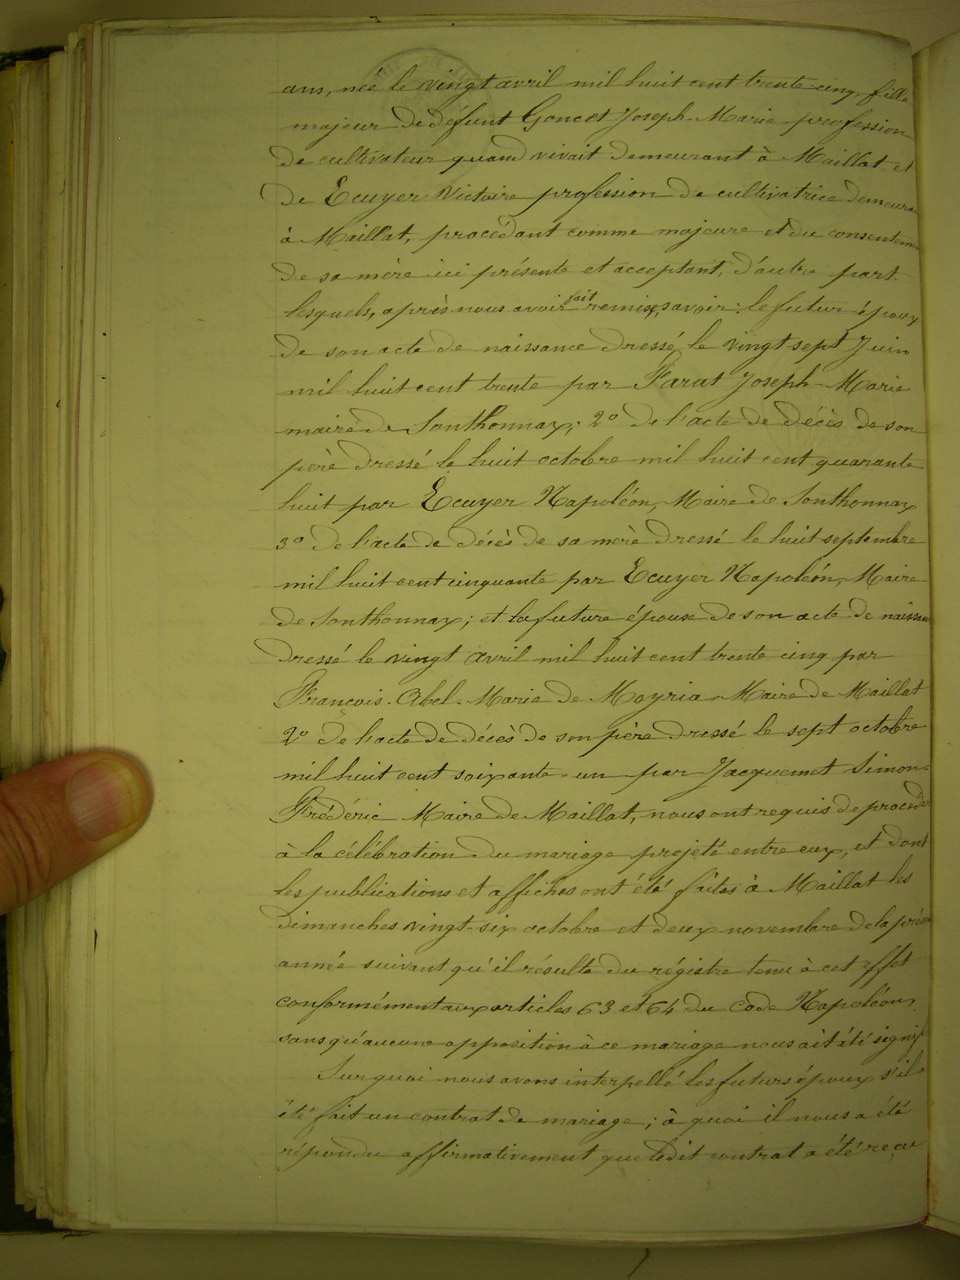 ans, née le vingt avril mil huit cent trente cinq, fille
majeur de défunt Goncet Joseph-Marie profession
de cultivateur quand vivait demeurant à Maillat et
de Ecuyer Victoire profession de cultivatrice demeura
à Maillat, procédant comme majeure et du consenteme
de sa mère ici présente et acceptant, d'autre part
lesquels, après nous avoir fait remise, savoir: le futur époux
de son acte de naissance dressé le vingt-sept Juin
mil huit cent trente par Farat Joseph-Marie
maire de Sonthonnax; 2° de l'acte de décès de son
père dressé le huit octobre mil huit cent quarante
huit par Ecuyer Napoléon, Maire de Sonthonnax
3° de l'acte de décès de sa mère dressé le huit septembre
mil huit cent cinquante par Ecuyer Napoléon, Maire
de Sonthonnax; et la future épouse de son acte de naissan
dressé le vingt avril mil huit cent trente cinq par
François-Abel-Marie de Moyria Maire de Maillat
2° de l'acte de décès de son père dressé le sept octobre
mil huit cent soixante-un par Jacquemet Simon-
Frédéric Maire de Maillat, nous ont requis de procéder
à la célébration du mariage projeté entre eux, et dont
les publications et affiches ont été faites à Maillat les
Dimanches vingt-six octobre et deux novembre de la présen
année suivant qu'il résulte du régistre tenu à cet effet
conformément aux articles 63 et 64 du Code Napoléon,
sans qu'aucune opposition à ce mariage nous ait été signif
Sur quoi nous avons interpellé les futurs époux s'il a
été fait un contrat de mariage; à quoi il nous a été
répondu affirmativement que ledit contrat a été reçu